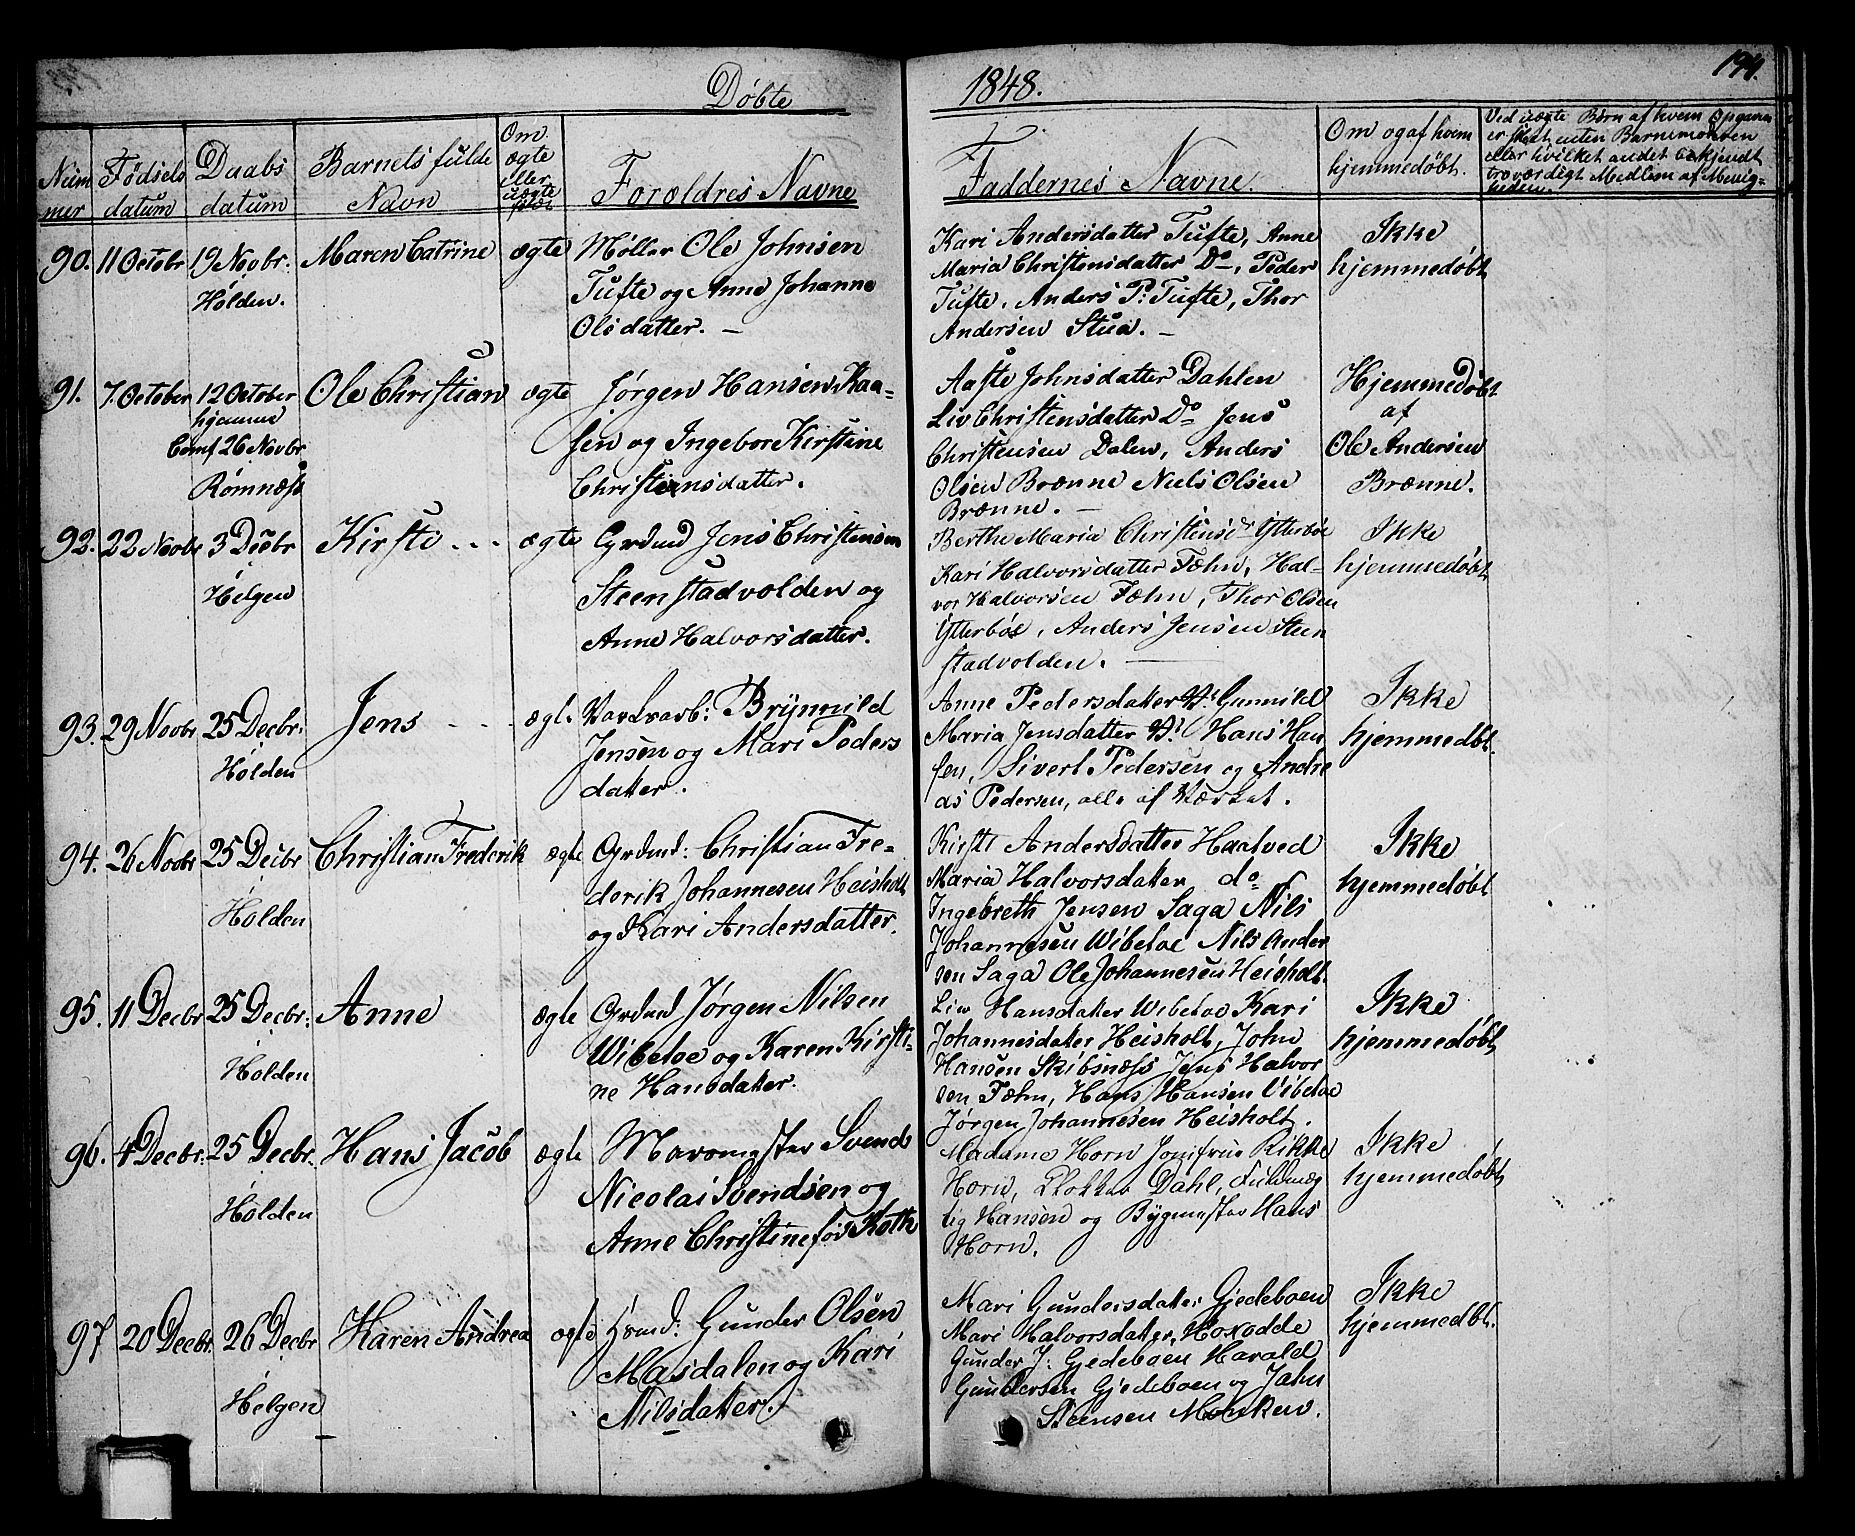 Døbte
1848.
194.
Num
mer
Fødsels
datum
Daabs
datum
Barnets fulde
Navn
Om
ægte
eller
uægte
Forældres Navne
Faddernes Navne.
Om og af hvem
hjemmedøbt.
Ved uægte Børn af hvem Opgaven
er skeet, enten Barnemoderen
eller hvilket andet bekjendt
troværdigt Medlem af Menig-
heden.
90. 11 Octobr 19 Novbr: Maren Catrine ægte Møller Ole Johnsen
Holden.
Tufte og Anne Johanne
Olsdatter. —
Kari Andersdatter Tufte, Anne
Maria Christensdatter Do, Peder
Tufte, Anders P: Tufte, Thor
Andersen Stua. —
Ikke
hjemmedøbt
91. 7 October 12 October Ole Christian ægte Jørgen Hansen Kaa=
hjemme
Comf 26 Novbr
Romnæss
sen og Ingebor Kirstine
Christiensdatter.
Aaste Johnsdatter Dahlen
Liv Christensdatter Do Jens
Christensen Dalen, Anders
Olsen Brænne Niels Olsen
Brænne. —
Hjemmedøbt
af
Ole Andersen
Brænne.
92. 22 Novbr 3 Decbr Kirsti . - - ægte Grdmd Jens Christensen
Helgen
Steenstadvolden og
Anne Halvorsdatter.
Berthe Maria Christensdr Ytterbøe
Kari Halvorsdatter Fæhn, Hal-
vor Halvorsen Fæhn, Thor Olsen
Ytterbøe, Anders Jensen Steen
stadvolden. —
Ikke
hjemmedøbt
93. 29 Novbr 25 Decbr: Jens - - - ægte Værksarb: Brynnild
Holden
Jensen og Mari Peders
datter.
Anne Pedersdatter V. Gunnild
Maria Jensdatter V. Hans Han
sen, Sivert Pedersen og Andre
as Pedersen, alle af Værket.
Ikke
hjemmedøbt.
94. 26 Novbr 25 Decbr Christian Frederik ægte Grdmd: Christian Fre-
Holden
derik Johannesen Heisholt
og Kari Andersdatter.
Kirsti Andersdatter Haatved
Maria Halvorsdatter do
Ingebreth Jensen Saga Nils
Johannesen Wibetoe Nils Ander
sen Saga Ole Johannesen Heisholt.
Ikke
hjemmedøbt
95. 11 Decbr 25 Decbr: Anne ægte Grdmd Jørgen Nilsen
Holden
Wibetoe og Karen Kirsti-
ne Hansdatter.
Liv Hansdatter Wibetoe Kari
Johannesdatter Heisholt, John
Hansen Skibsnæss Jens Halvor
sen Fæhn, Hans Hansen Vibetoe
Jørgen Johannesen Heisholt.
Ikke
hjemmedøbt
96. 4 Decbr: 25 Decbr. Hans Jacob ægte Marsmester Svend
Holden
Nicolai Svendsen og
Anne Christine fød Koth
Madame Horn Jomfrue Rikke
Horn, Dokter Dahl, Fuldmæg
tig Hansen og Bygmester Hans
Horn.
Ikke
hjemmedøbt
97 20 Decbr. 26 Decbr Karen Andrea ægte Husmd: Gunder Olsen
Helgen
Masdalen og Kari
Nilsdatter.
Mari Gundersdatter Gjedeboen
Mari Halvorsdatter, Hoxodde
Gunder J: Gjedeboen Harald
Gundersen Gjedeboen og Jahn
Steensen Moeken.
Ikke
hjemmedøbt.